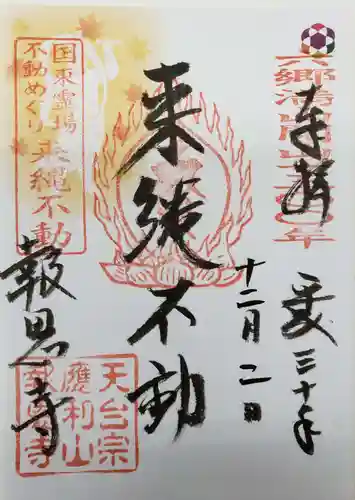 六郷満山開山一三〇〇年
奉拝
平成三十年
十二月二日
来縄不動
国東霊場
不動めぐり
来縄不動
報恩寺
天台宗
鷹利山
報恩寺